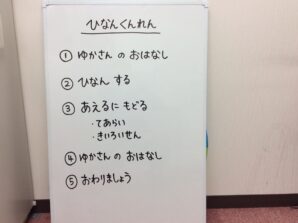 ひなんくんれん
① ゆかさん の おはなし
② ひなん する
③ あえるに もどる
・てあらい
・きいろいせん
④ ゆかさん の おはなし
⑤ おわりましょう